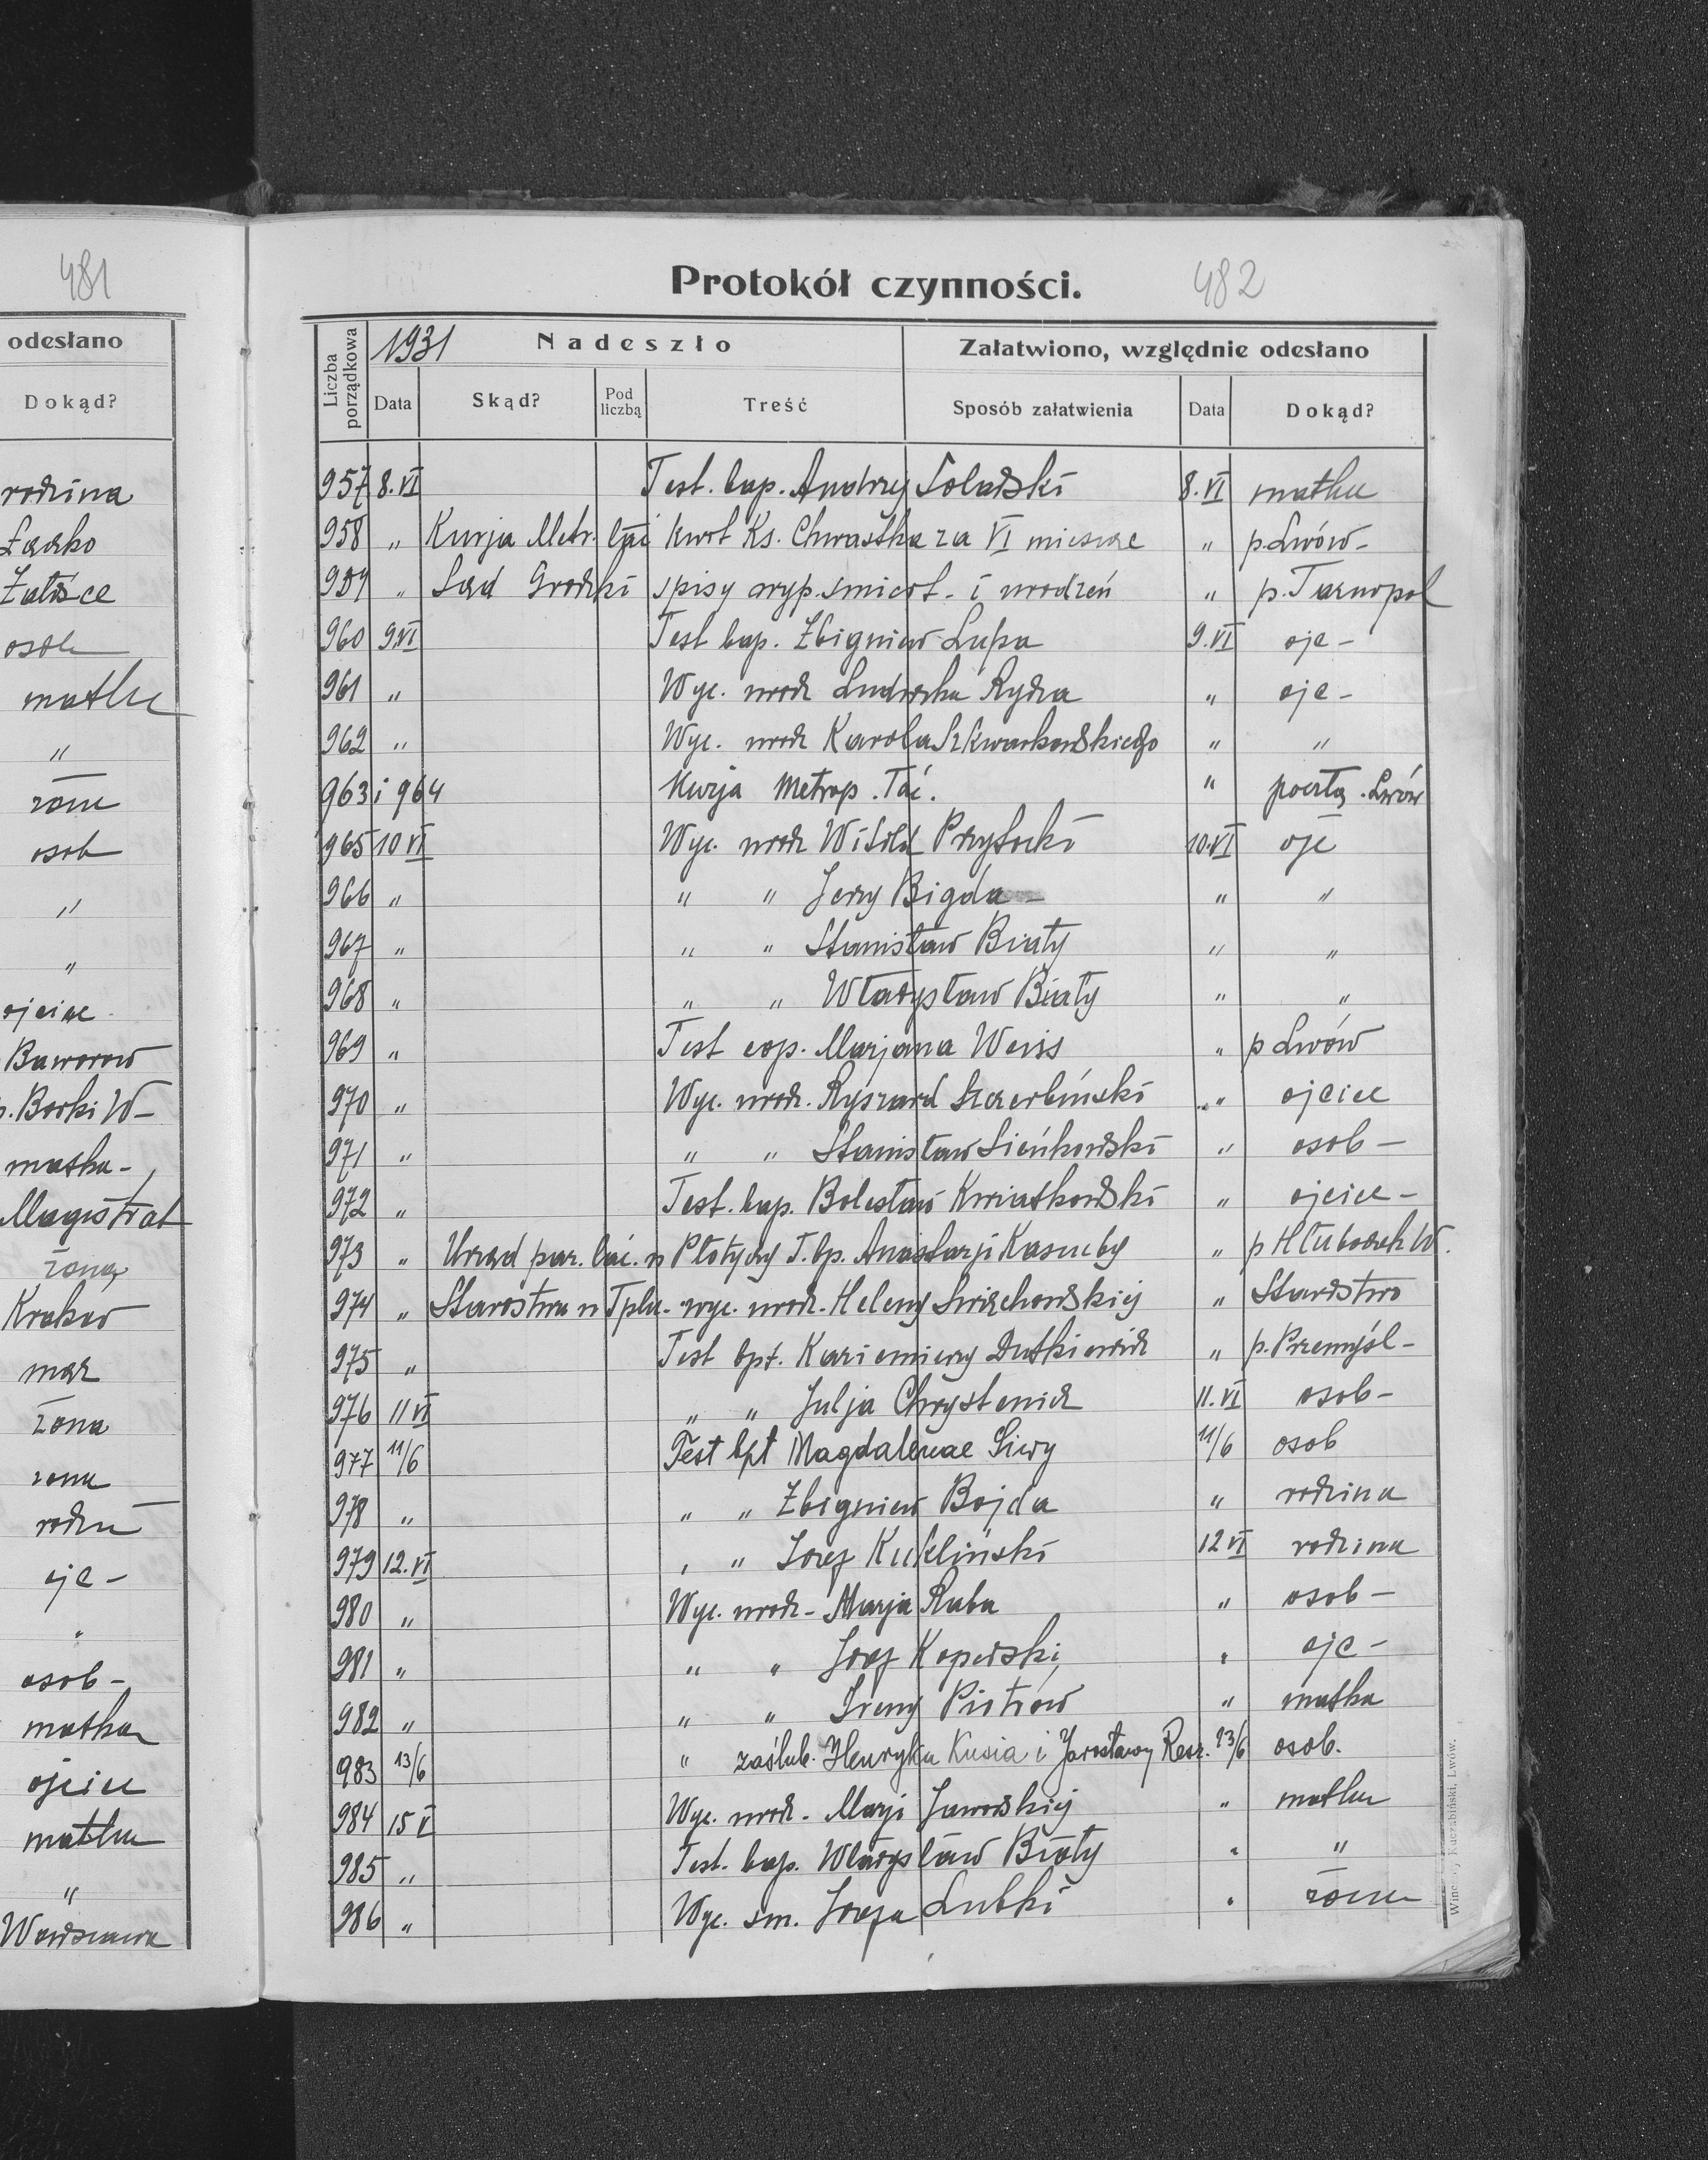 481
odesłano
Dokąd?
rodzina
Załośce
osob
matka
"
żona
osob
"
"
ojciec
Baworow
p. Borki W-
matka-
Magistrat
żoną
Krakow
mąż
żona
żona
rodzi
ojc-
"
osob-
matka
ojciec
matka
"
Warszawa
Protokół czynności. 482
Liczba porządkowa 1931 Nadeszło Załatwiono, względnie odesłano
Data Skąd? Pod liczbą Treść Sposób załatwienia Data Dokąd?
957 8.VI Test. bap. Andrzej 8.VI matka
958 " Kurja Metr. łać kwit Ks. Chwastka za VI miesiąc " p. Lwów-
959 " Sąd Grodzki spisy wyp. śmiert- i urodzeń " p. Tarnopol
960 9.VI Test bap. Zbigniew Lupa 9.VI ojc-
961 " Wyc. urodz Ludwika Rydza " ojc-
962 " Wyc. urodz Karola Szkwarkowskiego " "
963 i 964 Kurja Metrop. łać. " pocztą. Lwów
965 10 VI Wyc. urodz Witold Przyłocki 10.VI ojc
966 " " " Jerzy Bigda " "
967 " " " Stanisław Biały " "
968 " " " Władysław Biały " "
969 " Test cop. Marjana Weiss " p Lwów
970 " Wyc. urodz. Ryszard Szczerbiński " ojciec
971 " " " Stanisław Sieńkowski " osob-
972 " Test. bap. Bolesław Kwiatkowski " ojciec-
973 " Urząd par. łać. w Płotyczy T. bp. Anastazji Kaszuby " p Hłuboczek W.
974 " Starostwo w Tplu- wyc. urodz. Heleny Swięchowskiej " Starostwo
975 " Test bpt. Kazimierz Dutkiewicz " p. Przemyśl-
976 11 VI " " Julja Chrystenicz 11.VI osob-
977 11/6 Test bpt Magdalenae Siwy 11/6 osob
978 " " " Zbigniew Bojda " rodzina
979 12.VI " " Józef Kukliński 12 VI rodzina
980 " Wyc. urodz- Marja Ruba " osob-
981 " " " Józef Koperski " ojc-
982 " " " Ireny Piotrów " matka
983 13/6 " zaślub. Henryka Kusia i Jarosławy Resz. 13/6 osob.
984 15 V Wyc. urodz- Marji Jaworskiej " matka
985 " Test. bap. Władysław Biały " "
986 " Wyc. śm. Józefa Lubki " żona
Wincenty Kuczabiński, Lwów.